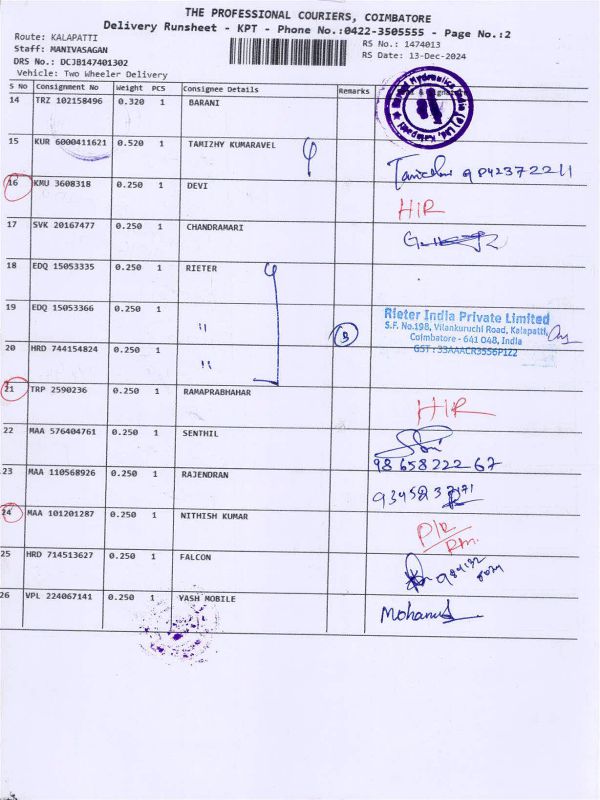 THE PROFESSIONAL COURIERS, COIMBATORE
Delivery Runsheet - KPT - Phone No.:0422-3505555 - Page No.:2
Route: KALAPATTI
Staff: MANIVASAGAN
DRS No.: DCJB147401302
Vehicle: Two Wheeler Delivery
RS No.: 1474013
RS Date: 13-Dec-2024
S No Consignment No Weight PCS Consignee Details Remarks
14 TRZ 102158496 0.320 1 BARANI
15 KUR 6000411621 0.520 1 TAMIZHY KUMARAVEL
9842372211
16 KMU 3608318 0.250 1 DEVI HIR
17 SVK 20167477 0.250 1 CHANDRAMARI
18 EDQ 15053335 0.250 1 RIETER
19 EDQ 15053366 0.250 1 " 3
Rieter India Private Limited
S.F. No.198, Vilankuruchi Road, Kalapatti,
Coimbatore - 641 048, India
GST : 33AAACR3556P1Z2
20 HRD 744154824 0.250 1 "
21 TRP 2590236 0.250 1 RAMAPRABHAHAR HIR
22 MAA 576404761 0.250 1 SENTHIL
98658222 67
23 MAA 110568926 0.250 1 RAJENDRAN
24 MAA 101201287 0.250 1 NITHISH KUMAR P/R
25 HRD 714513627 0.250 1 FALCON
26 VPL 224067141 0.250 1 YASH MOBILE